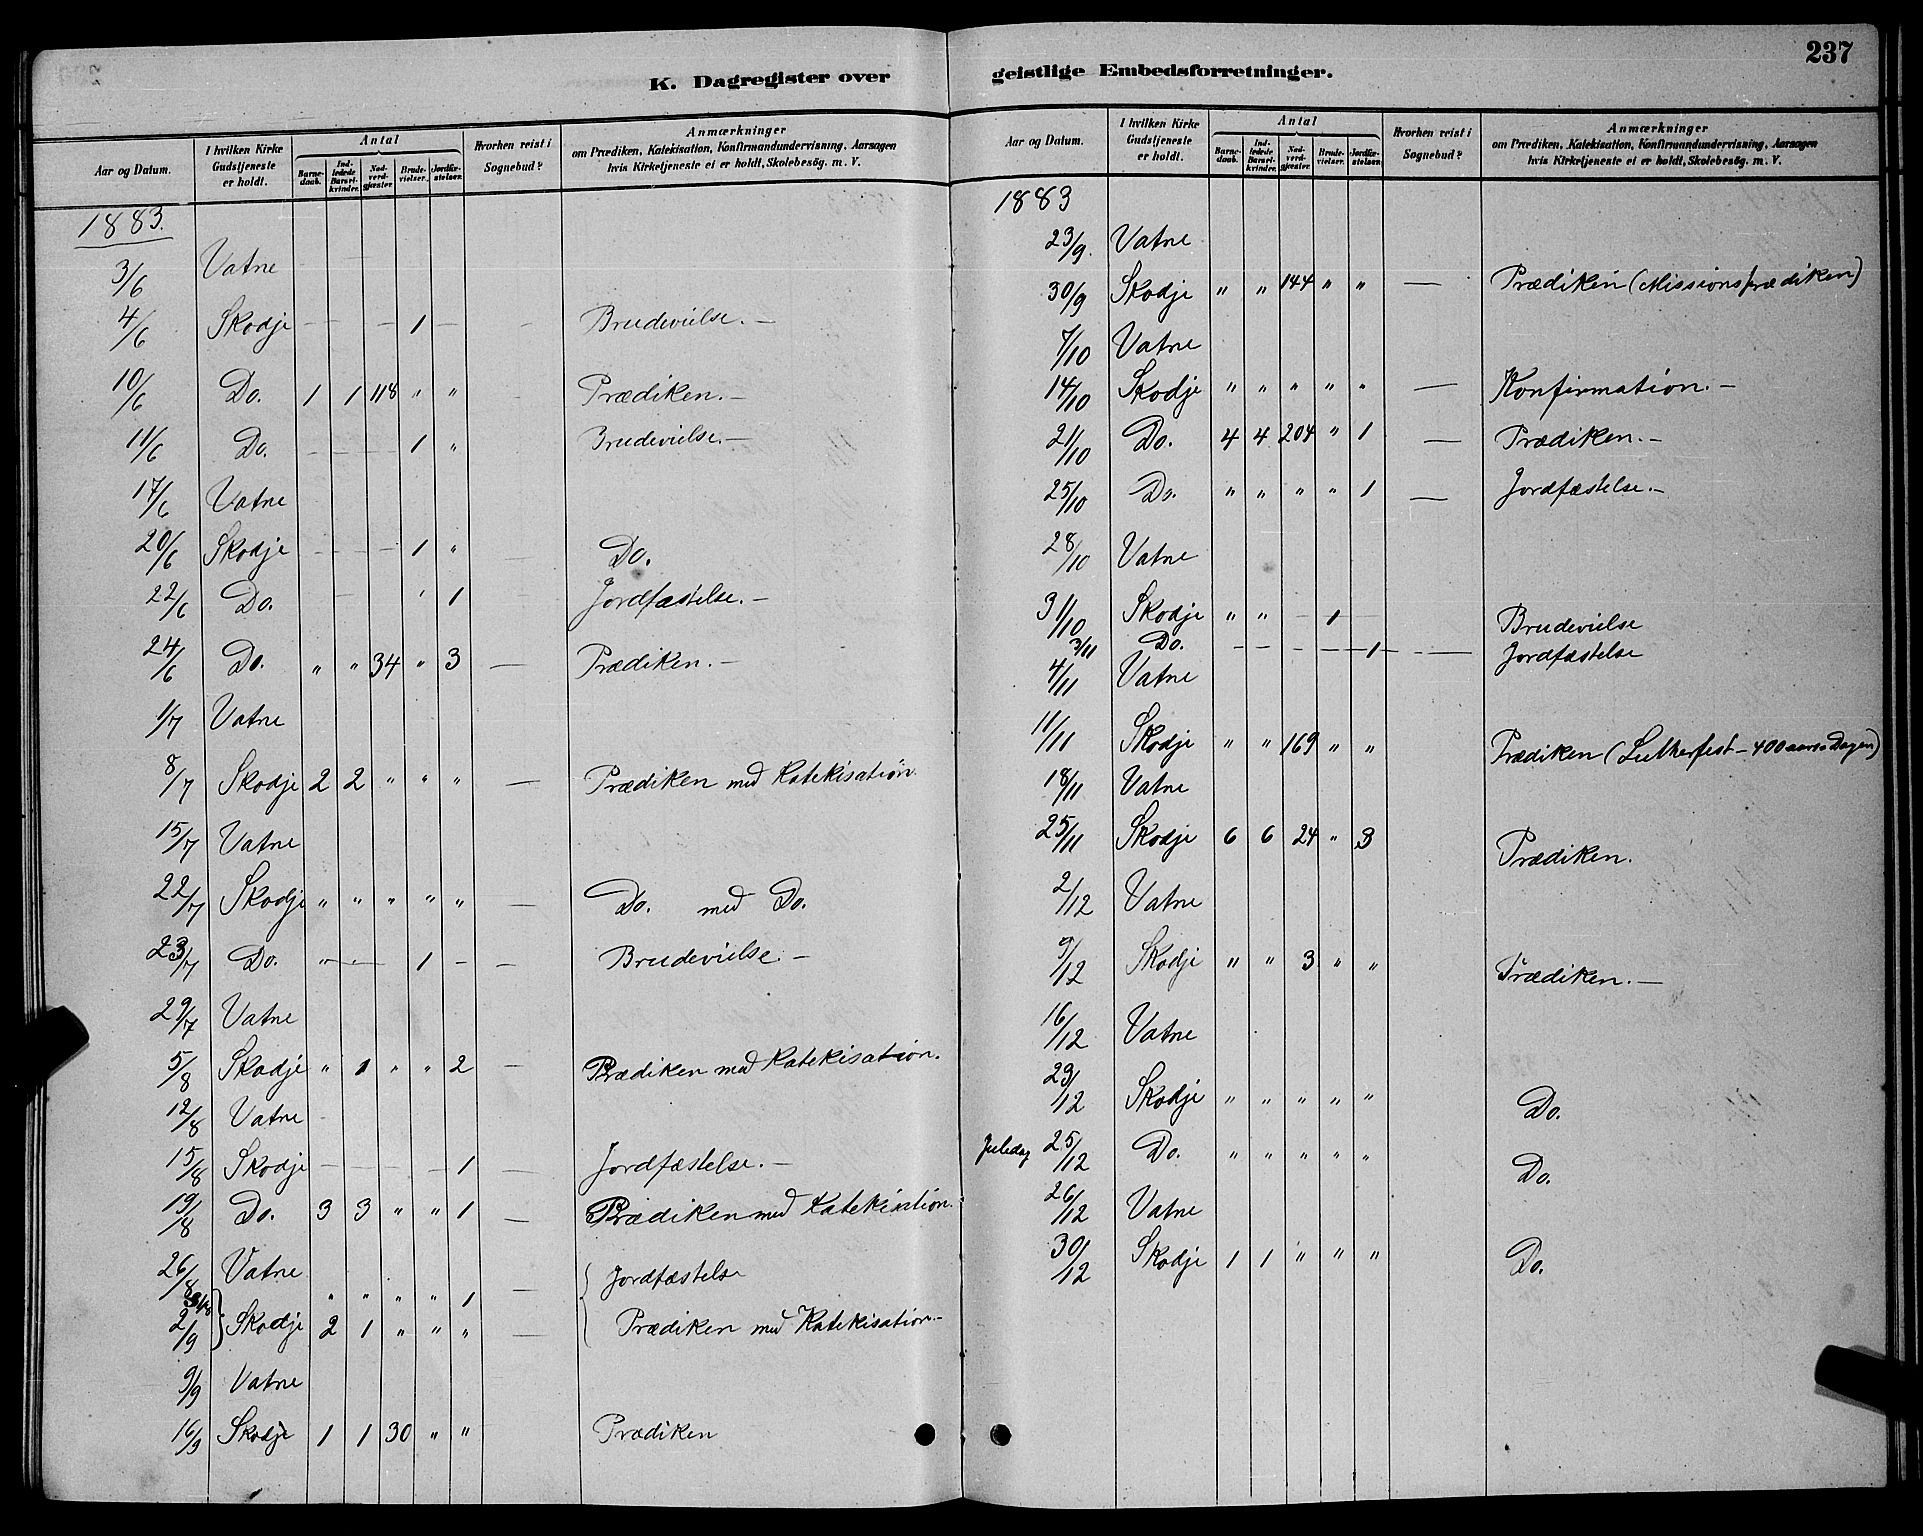 237
K. Dagregister over geistlige Embedsforretninger.
Aar og Datum. | I hvilken Kirke Gudstjeneste er holdt. | Antal | Hvorhen reist i Sognebud? | Anmærkninger om Prædiken, Katekisation, Konfirmandundervisning, Aarsagen hvis Kirketjeneste ei er holdt, Skolebesög. m. V.
Barnedaab. | Indledede Barselkvinder. | Nadverdgjæster. | Brudevielser. | Jordfæstelser.
1883.
3/6 Vatne
4/6 Skodje — — — 1 — — Brudevielse. —
10/6 Do. 1 1 118 " " — Prædiken. —
11/6 Do. — — — 1 " Brudevielse. —
17/6 Vatne
20/6 Skodje — — — 1 " — Do.
22/6 Do. — — ' 1 — Jordfæstelse. —
24/6 Do. " " 34 " 3 — Prædiken. —
1/7 Vatne
8/7 Skodje 2 2 " " " — Prædiken med Katekisation
15/7 Vatne
22/7 Skodje " " " " " — Do. med Do.
23/7 Do. " — — 1 — — Brudevielse. —
29/7 Vatne
5/8 Skodje " 1 " " 2 — Prædiken med Katekisation.
12/8 Vatne
15/8 Skodje — — — — 1 — Jordfæstelse. —
19/8 Do. 3 3 " " 1 — Prædiken med Katekisation.
26/8 Vatne
" " " " 1 — Jordfæstelse
2/9 Skodje 2 1 " " " — Prædiken med Katekisation. —
9/9 Vatne
16/9 Skodje 1 1 30 " " Prædiken
Aar og Datum. | I hvilken Kirke Gudstjeneste er holdt. | Antal | Hvorhen reist i Sognebud? | Anmærkninger om Prædiken, Katekisation, Konfirmandundervisning, Aarsagen hvis Kirketjeneste ei er holdt, Skolebesög. m. V.
Barnedaab. | Indledede Barselkvinder. | Nadverdgjæster. | Brudevielser. | Jordfæstelser.
1883
23/9 Vatne
30/9 Skodje " " 144 " " — Prædiken (Missionsprædiken)
7/10 Vatne
14/10 Skodje " " " " " — Konfirmation. —
21/10 Do. 4 4 204 " 1 — Prædiken. —
25/10 Do. " " " " 1 — Jordfæstelse. —
28/10 Vatne
31/10 Skodje " " — 1 — Brudevielse
3/11 Do. — — — — 1 — Jordfæstelse
4/11 Vatne
11/11 Skodje " " 169 " " Prædiken (Lutherfest – 400 aars Dagen)
18/11 Vatne
25/11 Skodje 6 6 24 " 3 Prædiken.
2/12 Vatne
9/12 Skodje " " 3 " " Prædiken. —
16/12 Vatne
23/12 Skodje " " " " " Do.
Juledag 25/12 Do. " " " " " Do.
26/12 Vatne
30/12 Skodje 1 1 " " " Do.